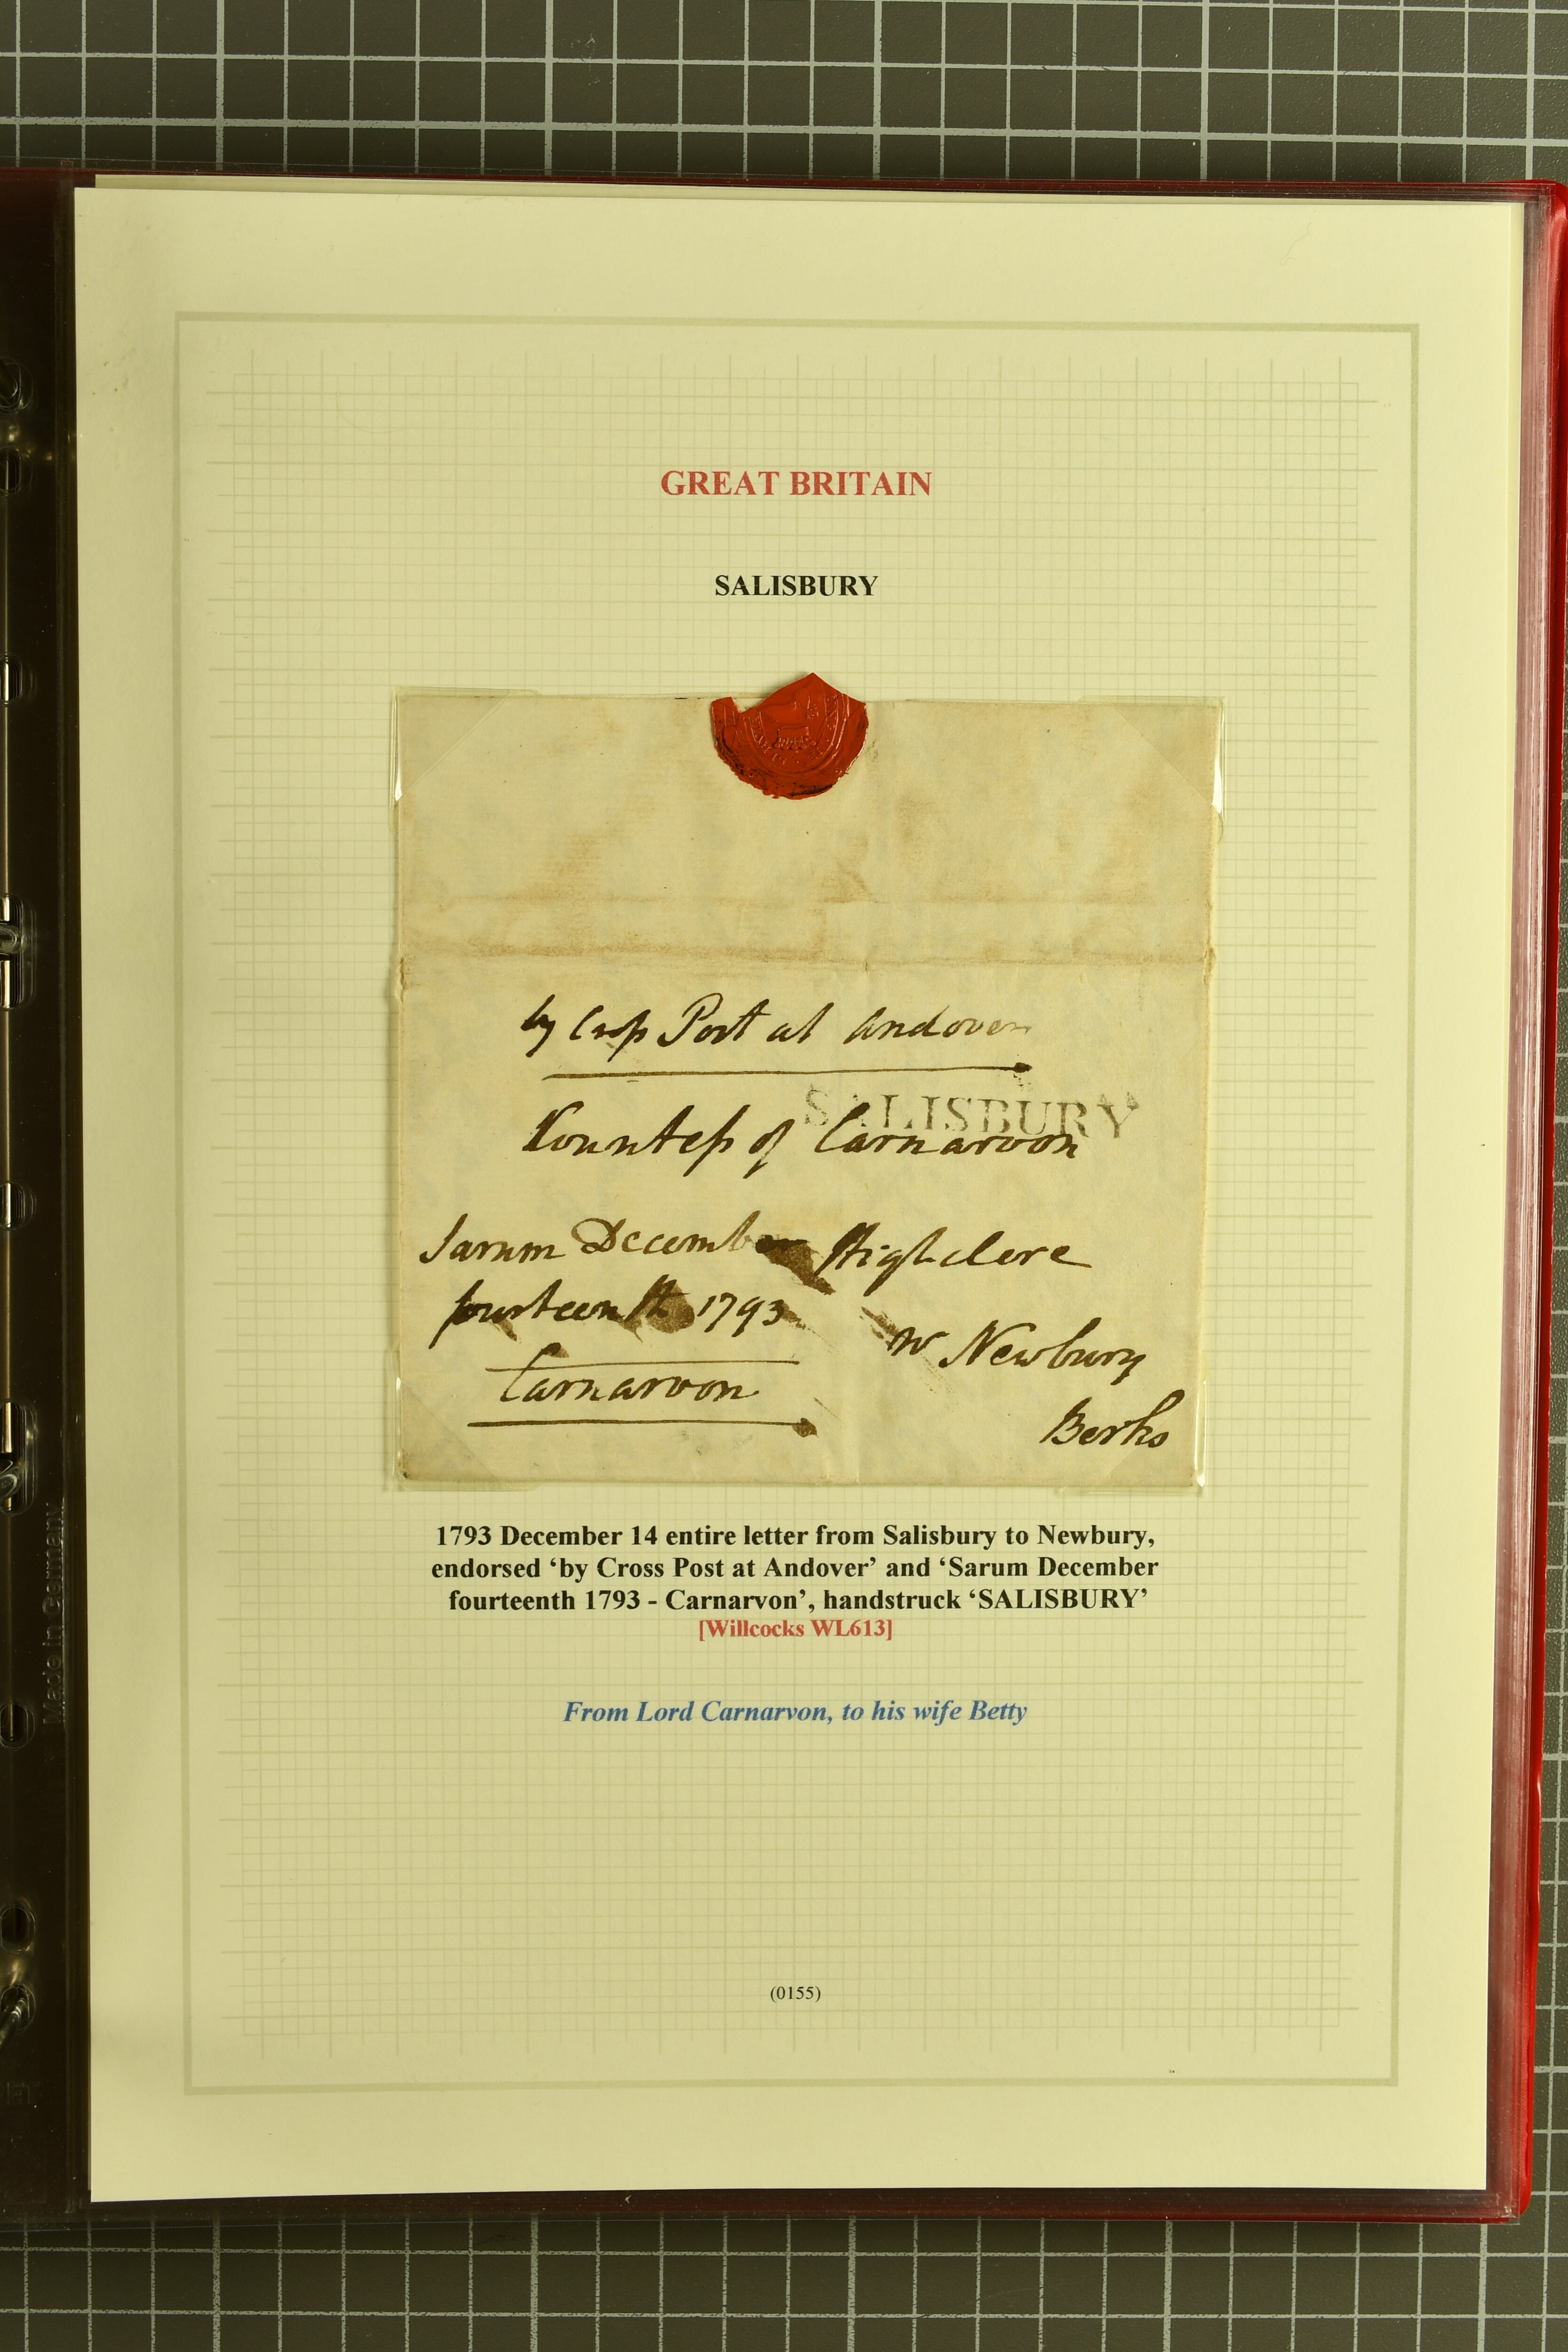 GREAT BRITAIN
SALISBURY
by Cross Post at Andover
SALISBURY
Countess of Carnarvon
Sarum December Highclere
fourteenth 1793
nr Newbury
Carnarvon
Berks
1793 December 14 entire letter from Salisbury to Newbury,
endorsed ‘by Cross Post at Andover’ and ‘Sarum December
fourteenth 1793 - Carnarvon’, handstruck ‘SALISBURY’
[Willcocks WL613]
From Lord Carnarvon, to his wife Betty
(0155)
Made in Germany